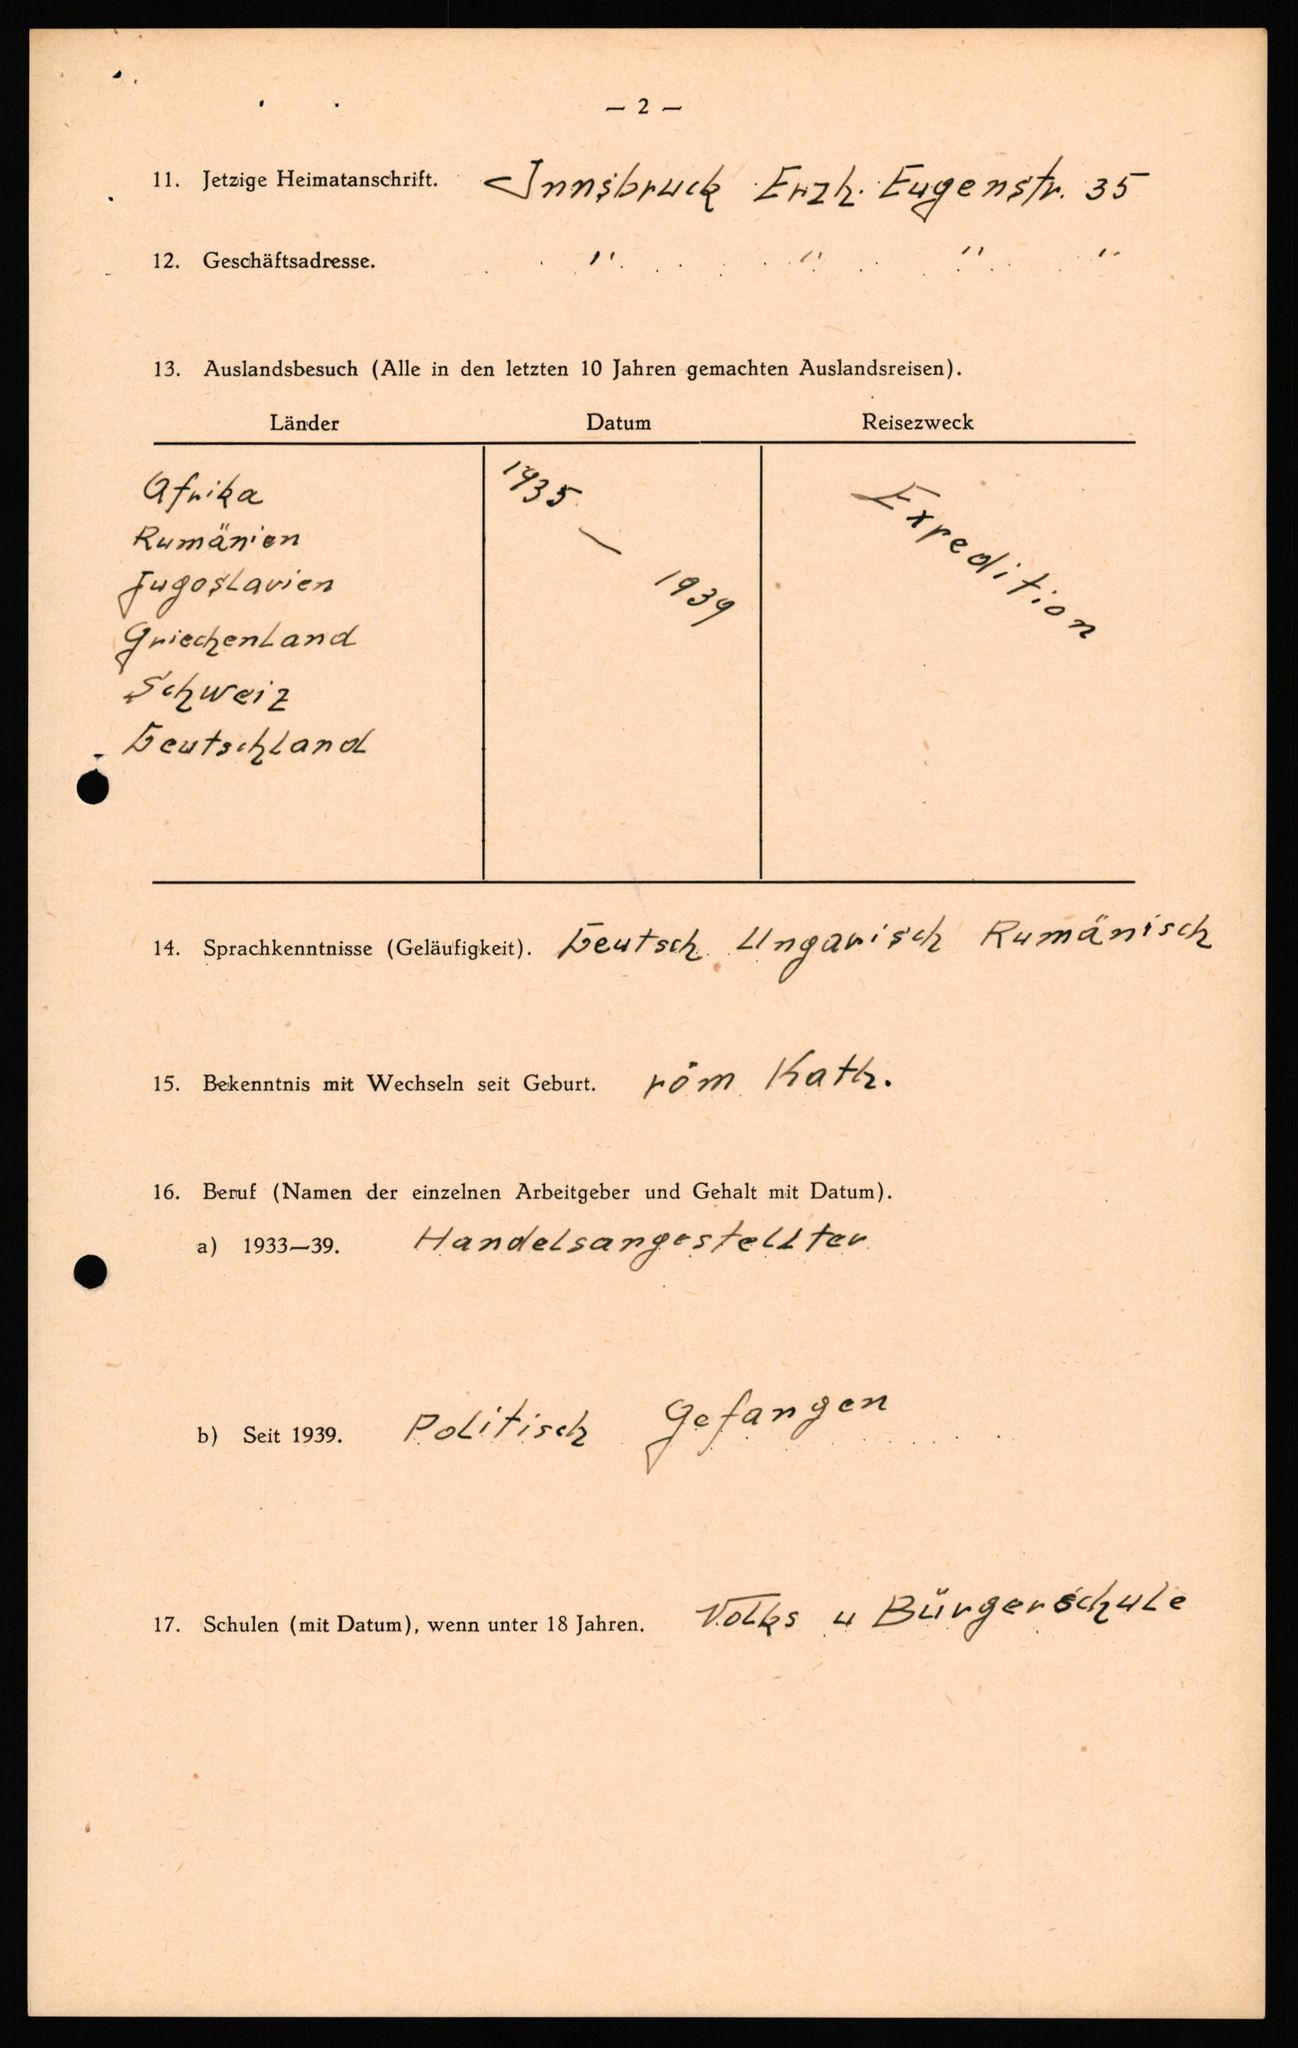 — 2 —
11. Jetzige Heimatanschrift. Innsbruck Erzh. Eugenstr. 35
12. Geschäftsadresse. " " " "
13. Auslandsbesuch (Alle in den letzten 10 Jahren gemachten Auslandsreisen).
Länder Datum Reisezweck
Afrika 1935 — 1939 Expedition
Rumänien
Jugoslavien
Griechenland
Schweiz
Deutschland
14. Sprachkenntnisse (Geläufigkeit). Deutsch Ungarisch Rumänisch
15. Bekenntnis mit Wechseln seit Geburt. röm Kath.
16. Beruf (Namen der einzelnen Arbeitgeber und Gehalt mit Datum).
a) 1933—39. Handelsangestellter
b) Seit 1939. Politisch Gefangen
17. Schulen (mit Datum), wenn unter 18 Jahren. Volks u Bürgerschule